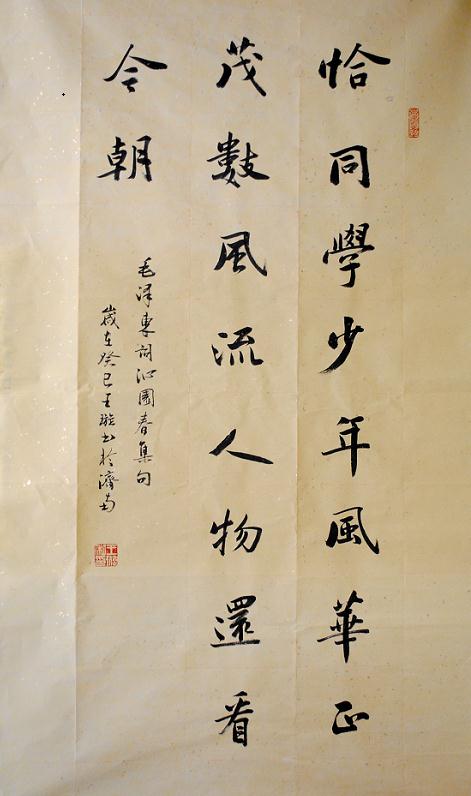 恰同學少年風華正
茂數風流人物還看
今朝
毛泽東詞沁園春集句
歲在癸巳王璇书於濟南